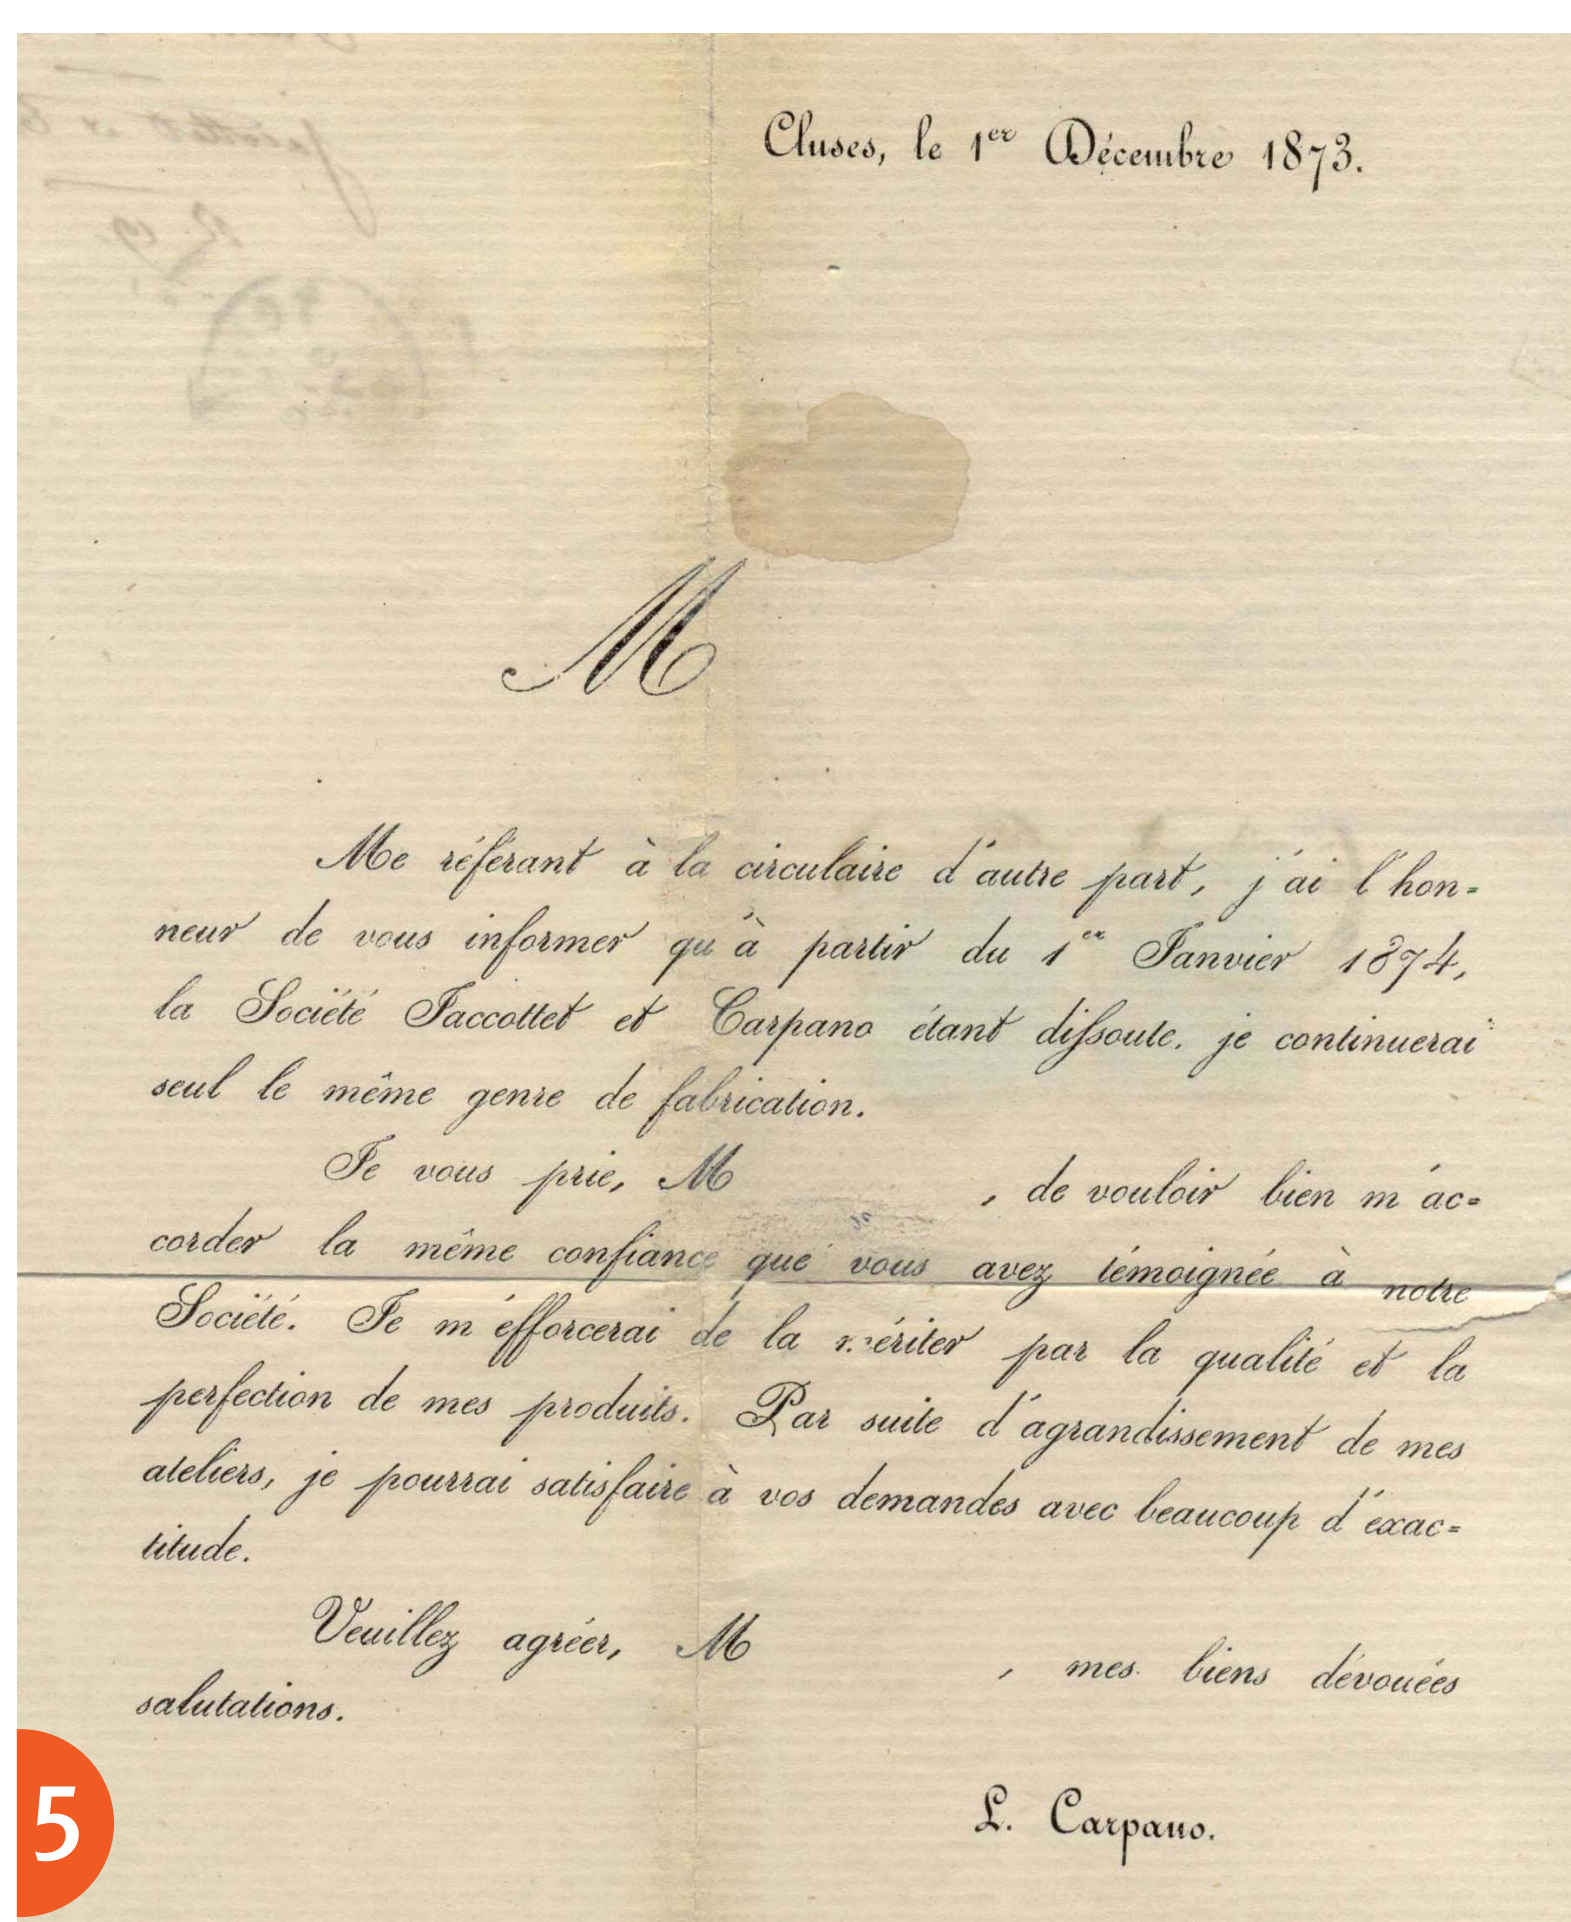 Cluses, le 1er Décembre 1873.
M
Me référant à la circulaire d'autre part, j'ai l'hon=
neur de vous informer qu'à partir du 1er Janvier 1874,
la Société Jaccottet et Carpano étant dissoute. je continuerai
seul le même genre de fabrication.
Je vous prie, M , de vouloir bien m'ac=
corder la même confiance que vous avez témoignée à notre
Société. Je m'éfforcerai de la mériter par la qualité et la
perfection de mes produits. Par suite d'agrandissement de mes
ateliers, je pourrai satisfaire à vos demandes avec beaucoup d'éxac=
titude.
Veuillez agréer, M , mes biens dévouées
salutations.
L. Carpano.
5